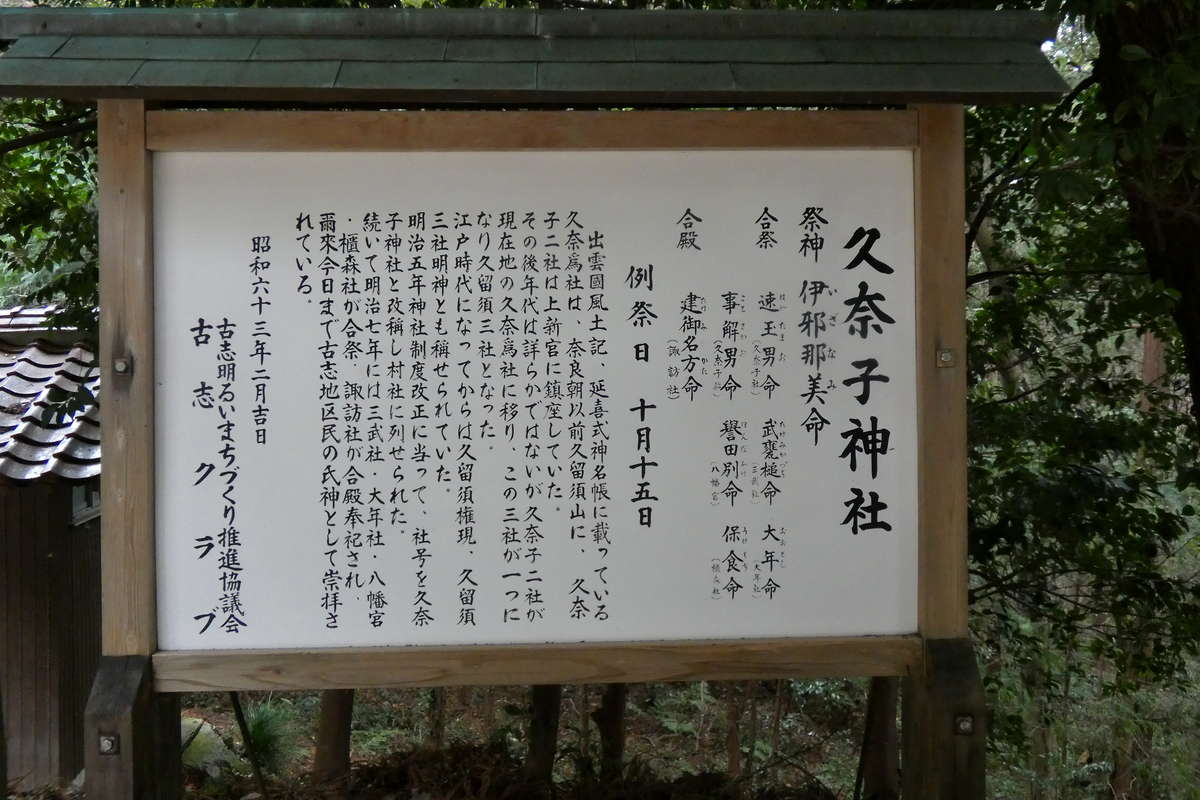 久奈子神社
祭神 伊邪那美命
いざなみ
合祭 速玉男命 武甕槌命 大年命
はやたまお たけみかづち おおとし
(久奈子社) (三武社) (大年社)
事解男命 譽田別命 保食命
ことさかお ほんだわけ うけもち
(久奈子社) (八幡宮) (櫃森社)
合殿 建御名方命
たけみなかた
(諏訪社)
例祭日 十月十五日
出雲國風土記、延喜式神名帳に載っている
久奈爲社は、奈良朝以前久留須山に、久奈
子二社は上新宮に鎮座していた。
その後年代は詳らかではないが久奈子二社が
現在地の久奈爲社に移り、この三社が一つに
なり久留須三社となった。
江戸時代になってからは久留須権現、久留須
三社明神とも称せられていた。
明治五年神社制度改正に当って、社号を久奈
子神社と改稱し村社に列せられた。
続いて明治七年には三武社・大年社・八幡宮
・櫃森社が合祭、諏訪社が合殿奉祀され、
爾來今日まで古志地区民の氏神として崇拝さ
れている。
昭和六十三年二月吉日
古志明るいまちづくり推進協議会
古志クラブ